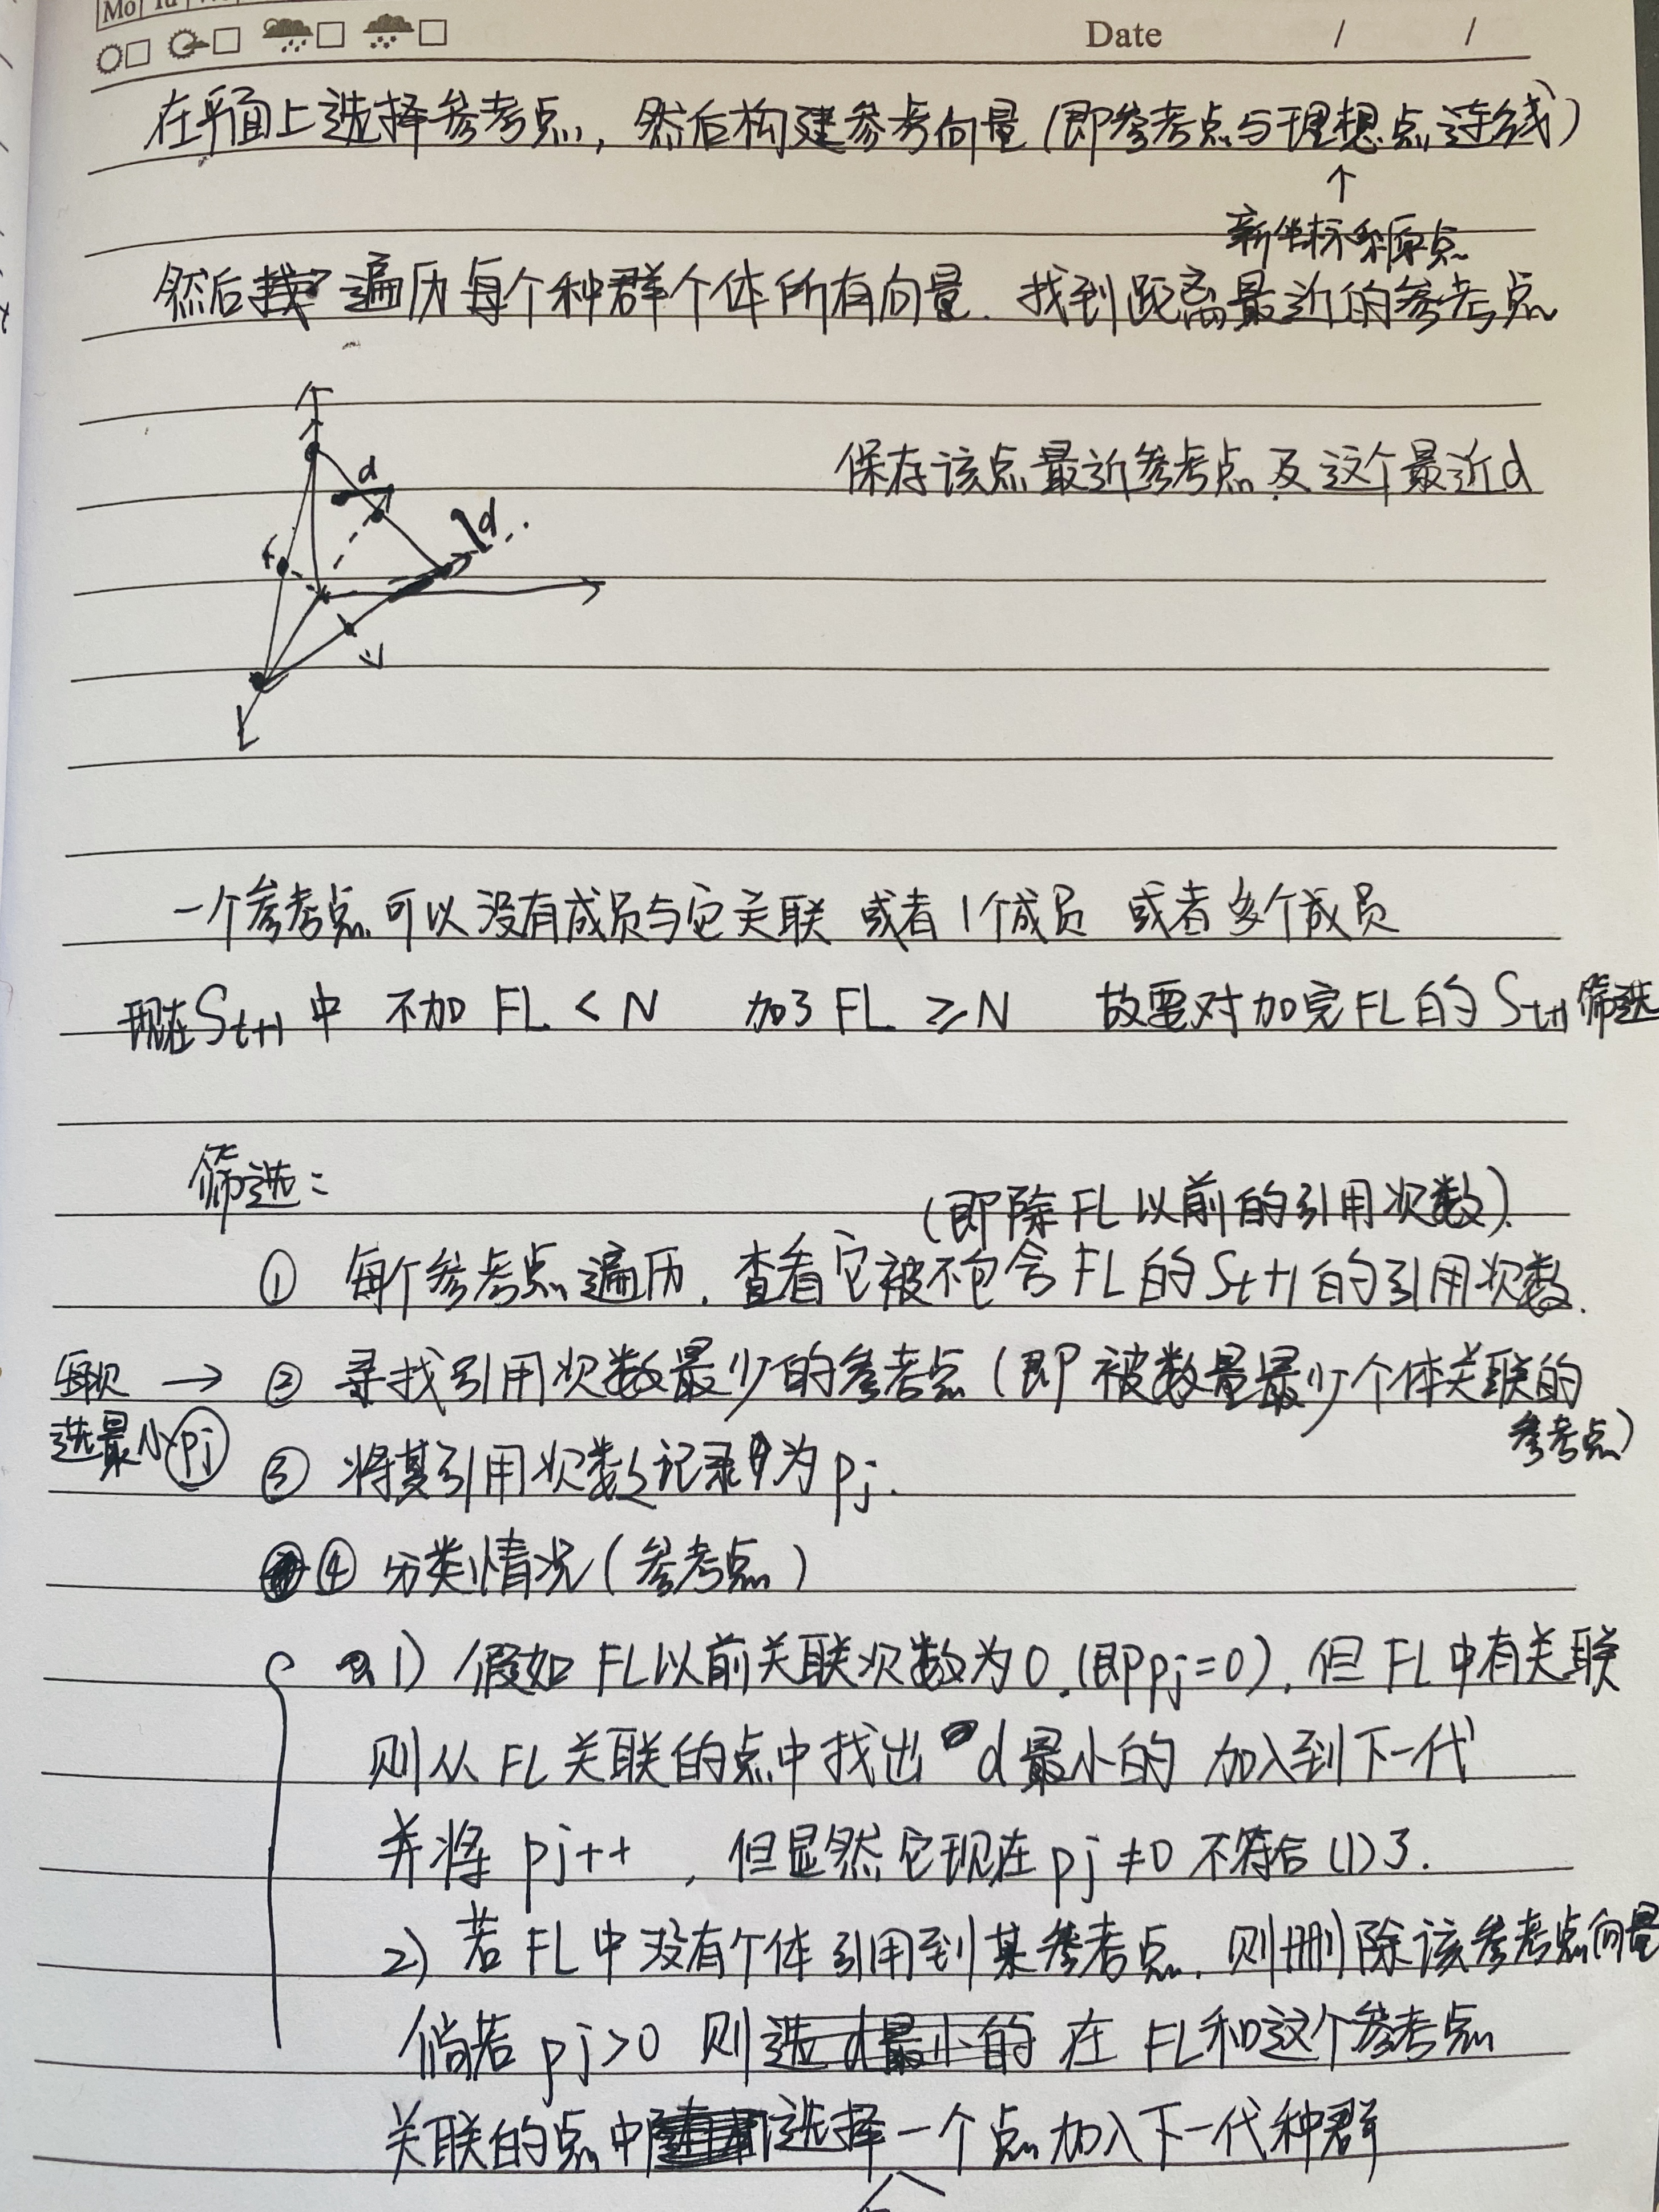 Mo Tu
Date / /
在平面上选择参考点，然后构建参考向量（即参考点与理想点连线）
↑
新坐标系原点
然后 遍历每个种群个体所有向量. 找到距离最近的参考点
d
d.
保存该点最近参考点及这个最近d
一个参考点可以没有成员与它关联 或者1个成员 或者多个成员
现在St+1中 不加FL < N 加了FL ≥N 故要对加完FL的St+1筛选
筛选：
（即除FL以前的引用次数）.
① 每个参考点遍历. 查看它被不包含FL的St+1的引用次数.
每次 → ② 寻找引用次数最少的参考点（即被数量最少个体关联的
参考点）
选最小pj ③ 将其引用次数记录为pj.
④ 分类情况（参考点）
1) 假如FL以前关联次数为0.(即pj=0). 但FL中有关联
则从FL关联的点中找出 d最小的 加入到下一代
并将 pj++ , 但显然它现在pj≠0 不符合(1)了.
2) 若FL中没有个体引用到某参考点. 则删除该参考点向量
倘若pj>0 则选d最小的 在FL和这个参考点
关联的点中 选择一个点加入下一代种群